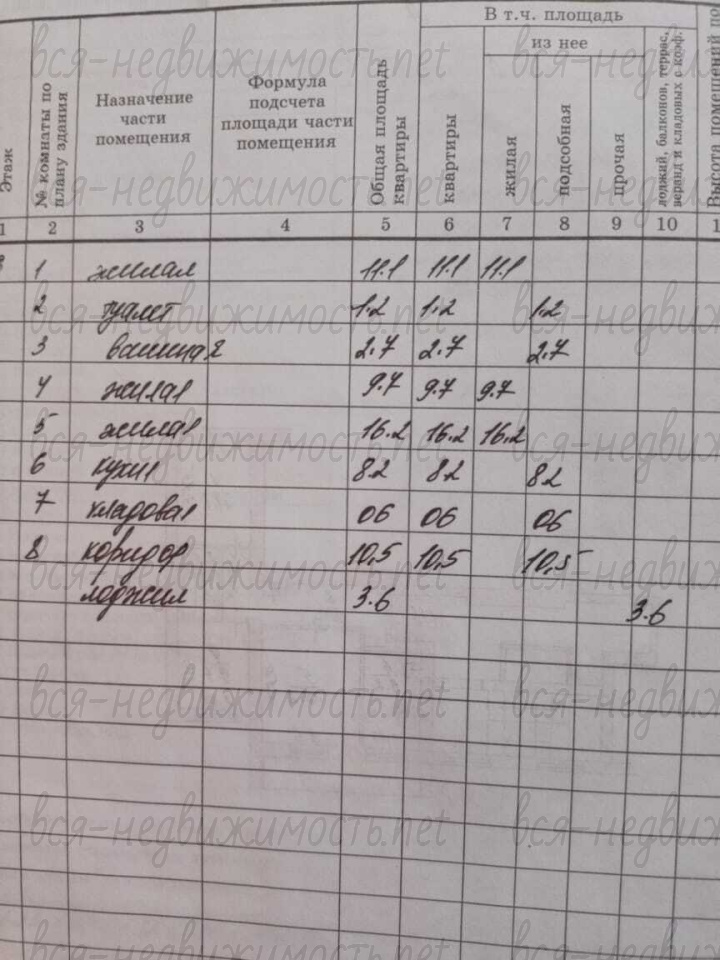 В т.ч. площадь
из нее
Этаж
№ комнаты по плану здания
Назначение части помещения
Формула подсчета площади части помещения
Общая площадь квартиры
квартиры
жилая
подсобная
прочая
лоджий, балконов, террас, веранд и кладовых с коэф.
Высота помещений по
1 2 3 4 5 6 7 8 9 10 1
1 жилая 11.1 11.1 11.1
2 туалет 1.2 1.2 1.2
3 ванная 2.7 2.7 2.7
4 жилая 9.7 9.7 9.7
5 жилая 16.2 16.2 16.2
6 кухня 8.2 8.2 8.2
7 кладовая 06 06 06
8 коридор 10,5 10,5 10,5
лоджия 3.6 3.6
вся-недвижимость.net
вся-недвижимость.net
вся-недвижимость.net
вся-недвижимость.net
вся-недвижимость.net
вся-недвижимость.net
вся-недвижимость.net
вся-недвижимость.net